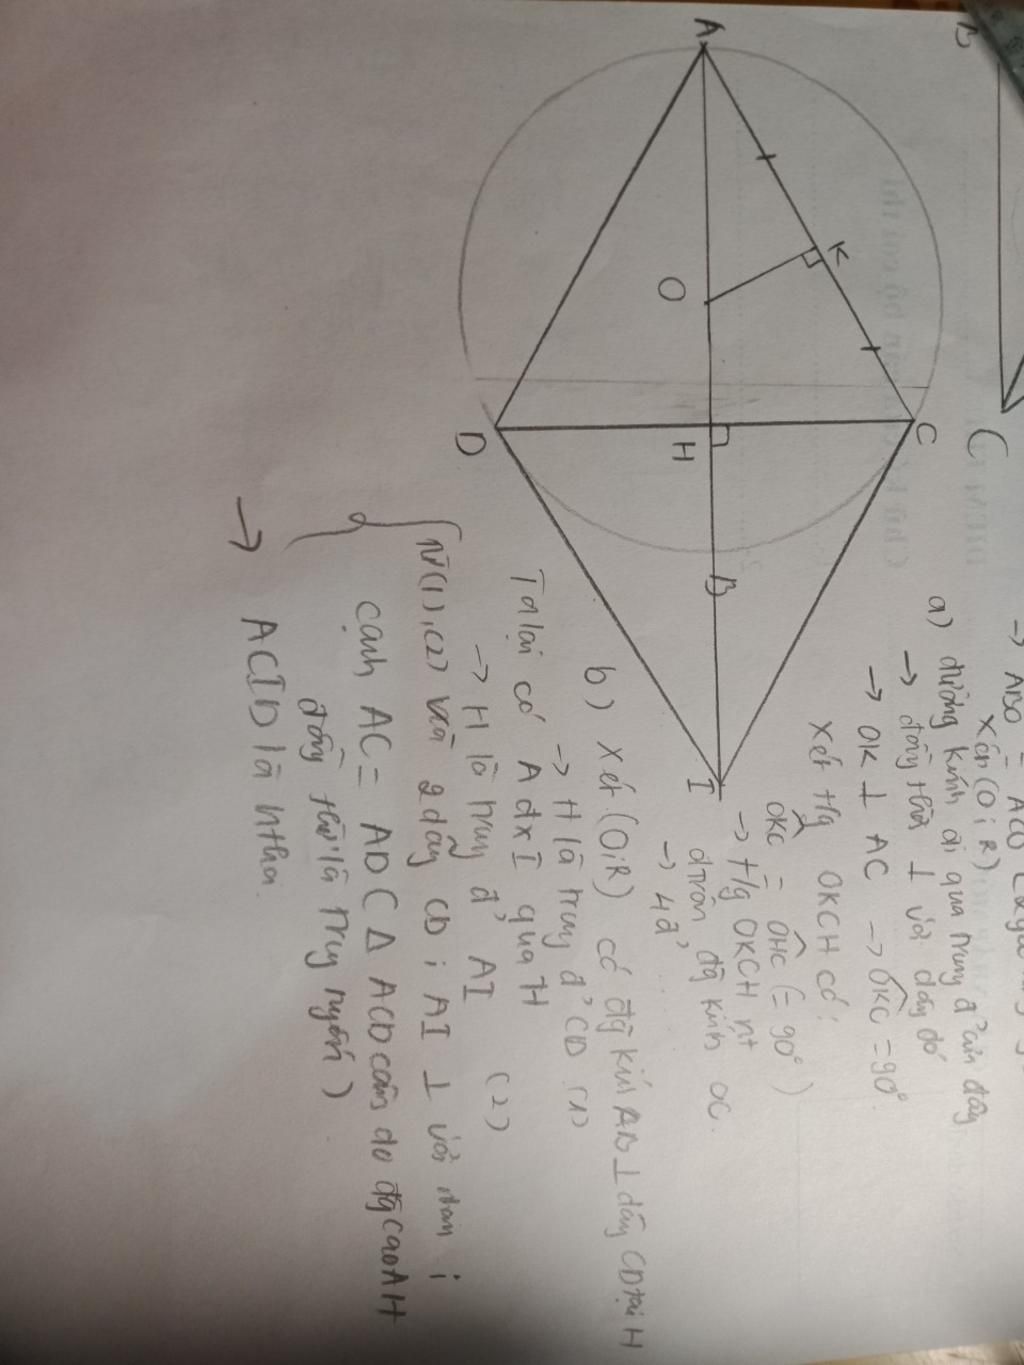 → ABO = ACO
xét (O; R)
a) đường kính đi qua trung đ' của dây
→ đồng thời ⊥ với dây đó
→ OK ⊥ AC → OKC = 90°
xét t/g OKCH có:
OKC = OHC (= 90°)
→ t/g OKCH nt
đtròn, đg kính OC.
→ 4đ'
b) xét (O;R) có đg kính AB ⊥ dây CD tại H
→ H là trung đ' CD (1)
Ta lại có A đx I qua H
→ H là trung đ' AI (2)
Từ (1), (2) và 2 dây CD; AI ⊥ với nhau;
cạnh AC = AD (Δ ACD cân do đg cao AH
đồng thời là trung tuyến)
→ ACID là hthoi.
A
K
C
O
H
D
B
I
B
C